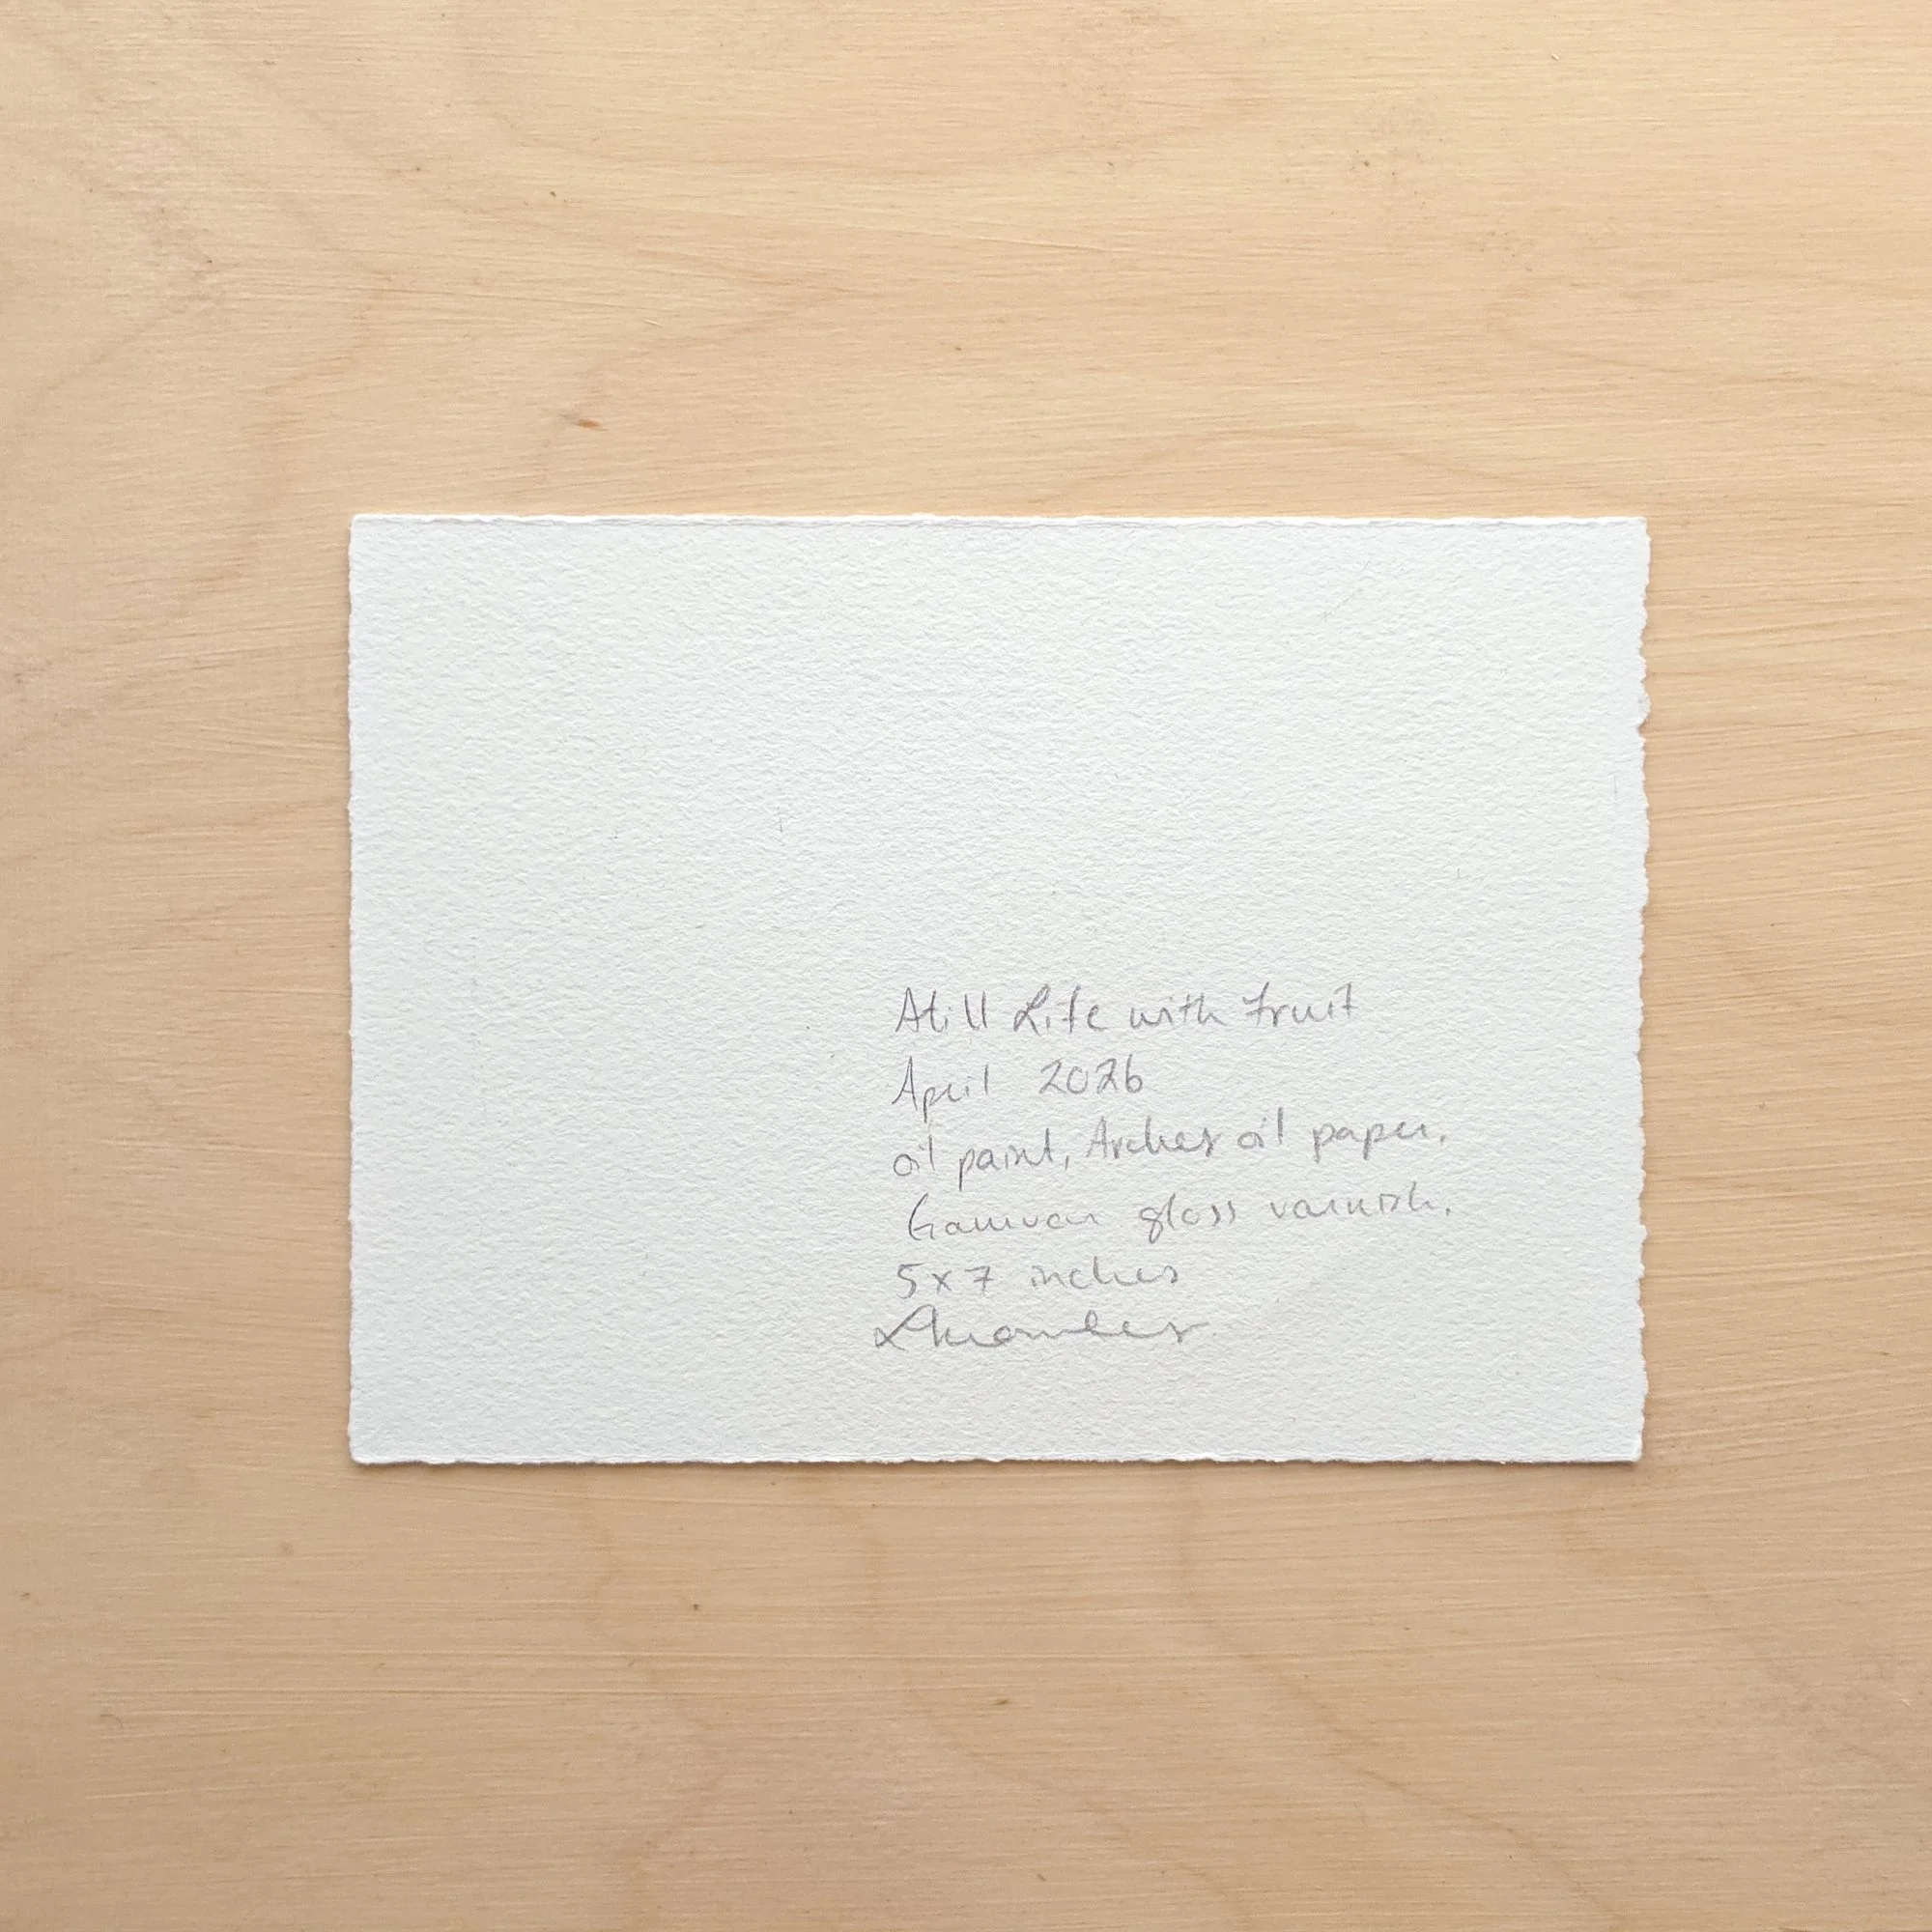 Still Life with Fruit
April 2026
oil paint, Arches oil paper.
Gamvar gloss varnish.
5x7 inches